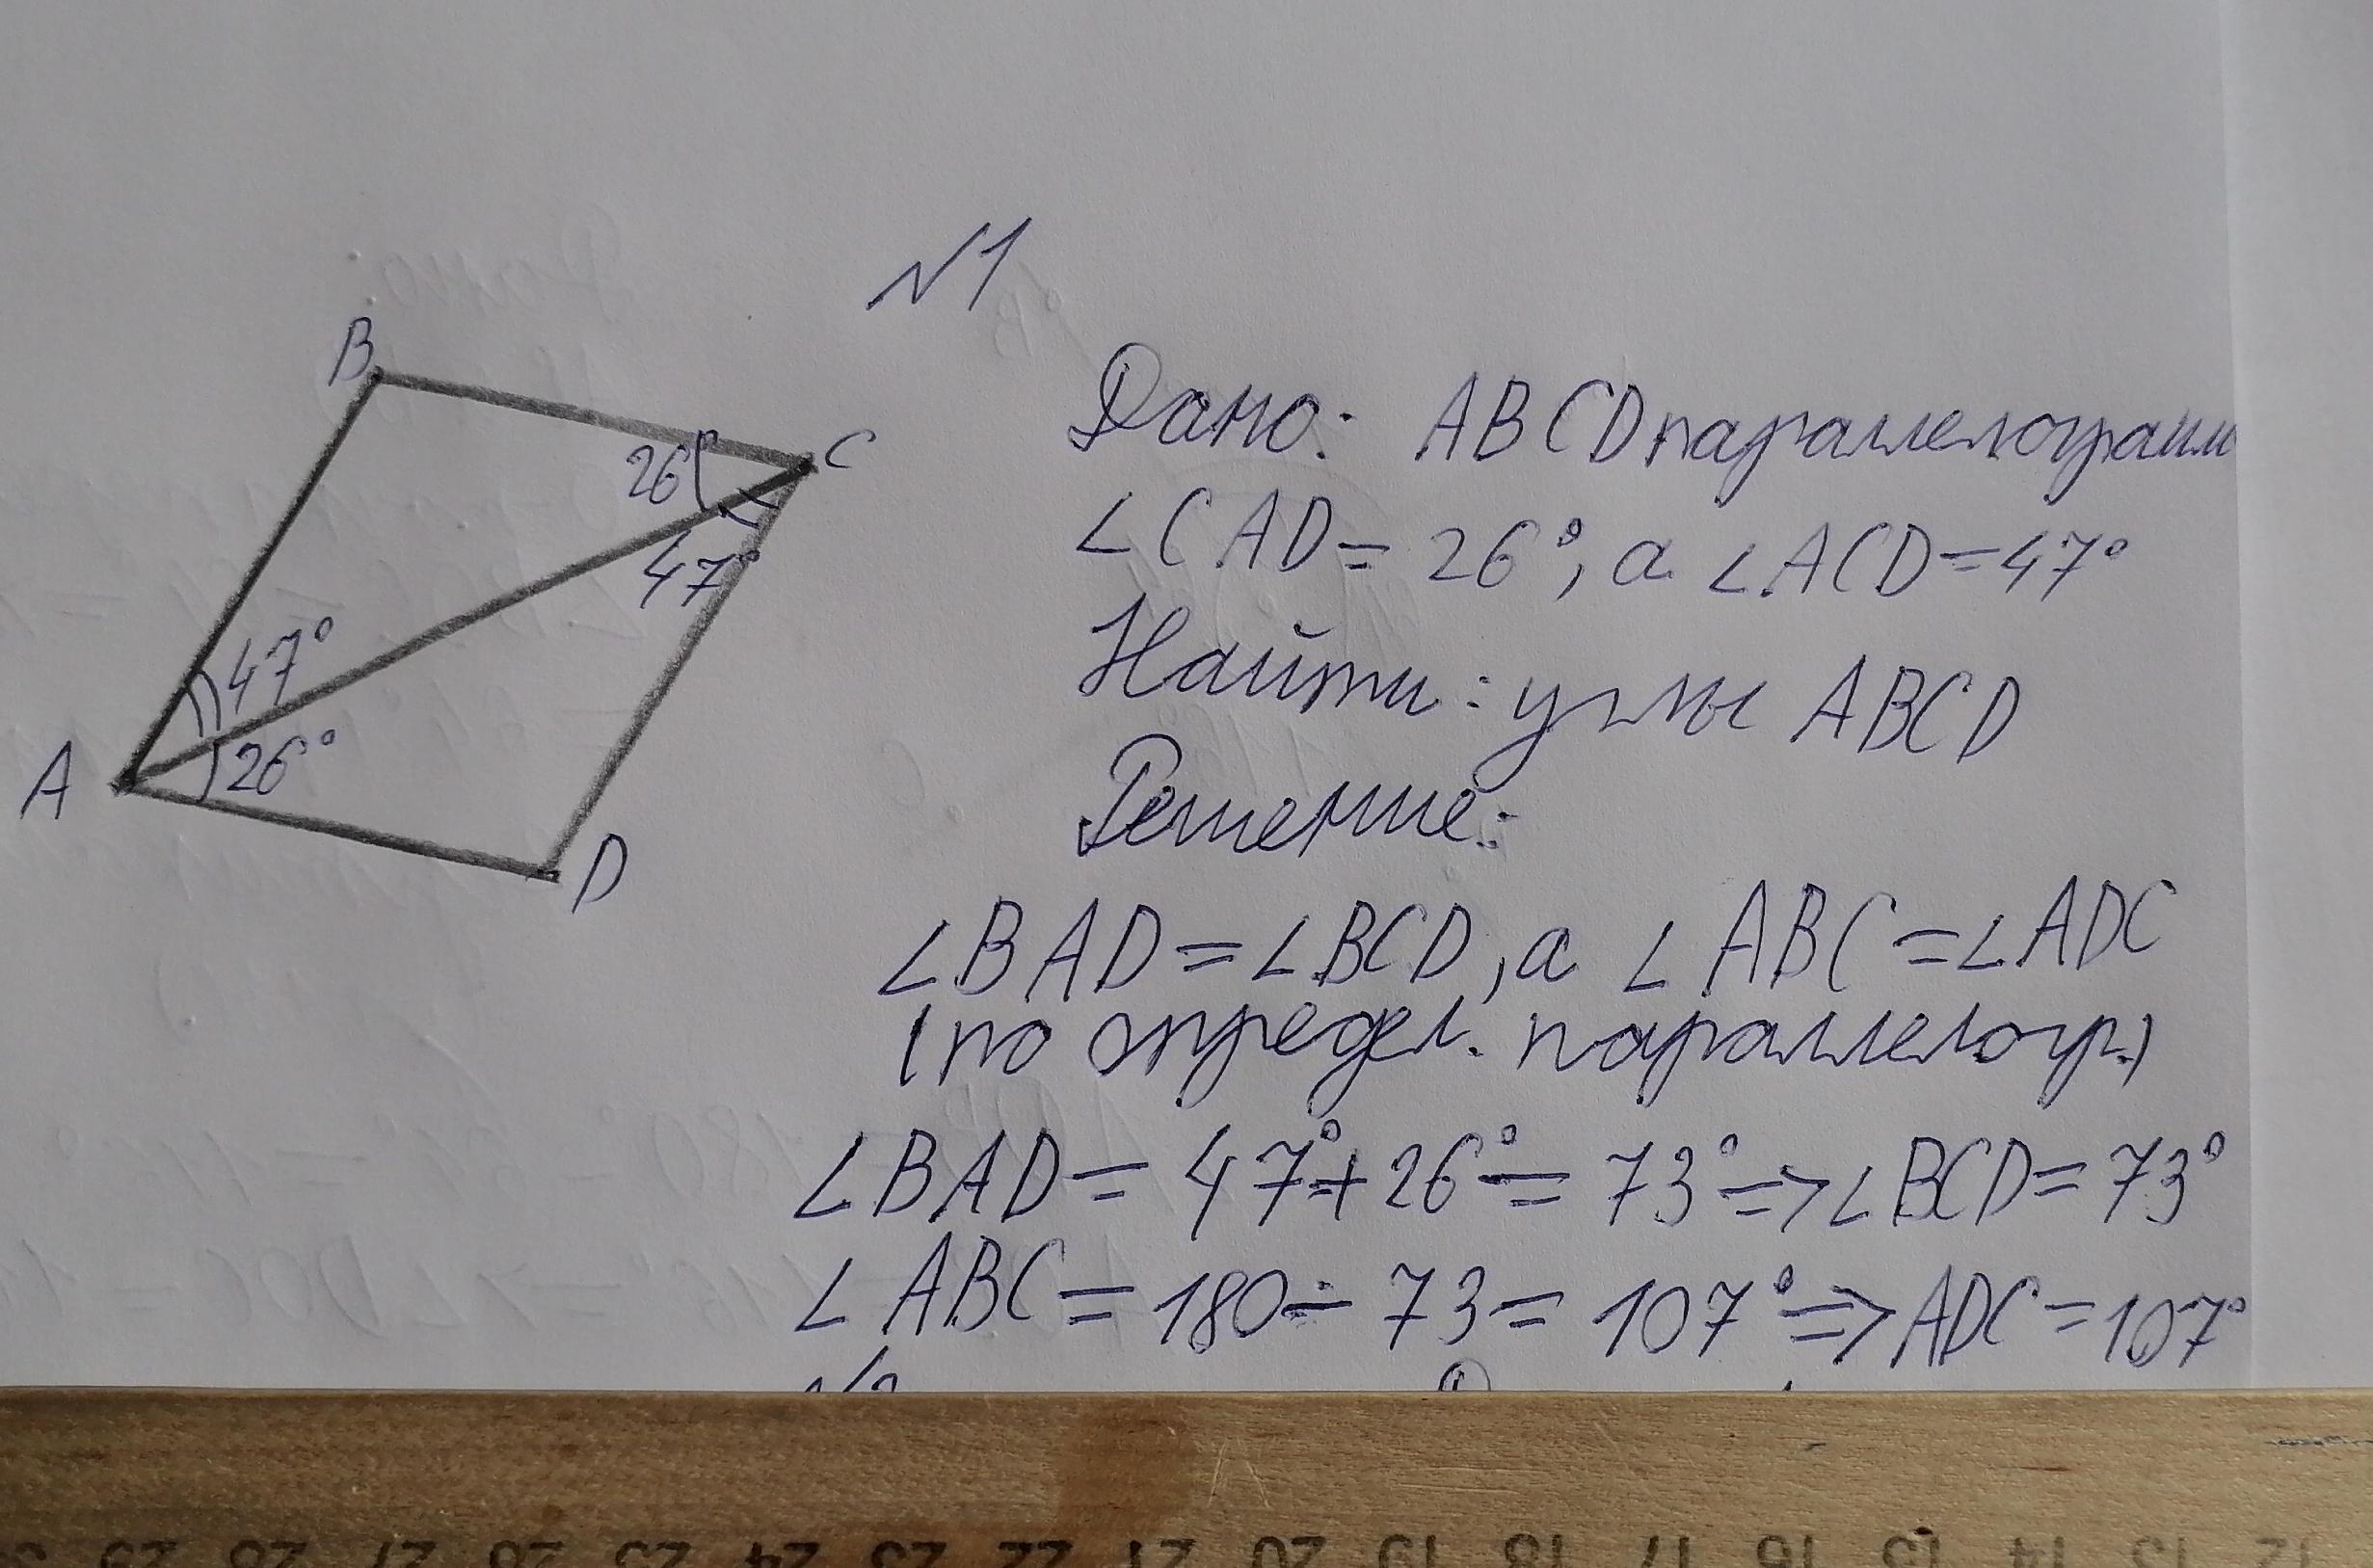 N1
B
C
26
47°
47°
26°
A
D
Дано: ABCD параллелограмм
∠CAD = 26°, а ∠ACD = 47°
Найти: углы ABCD
Решение:
∠BAD = ∠BCD, а ∠ABC = ∠ADC
(по определ. параллелогр.)
∠BAD = 47° + 26° = 73° => ∠BCD = 73°
∠ABC = 180 - 73 = 107° => ADC = 107°
29 28 27 26 25 24 23 22 21 20 19 18 17 16 15 14 13 12